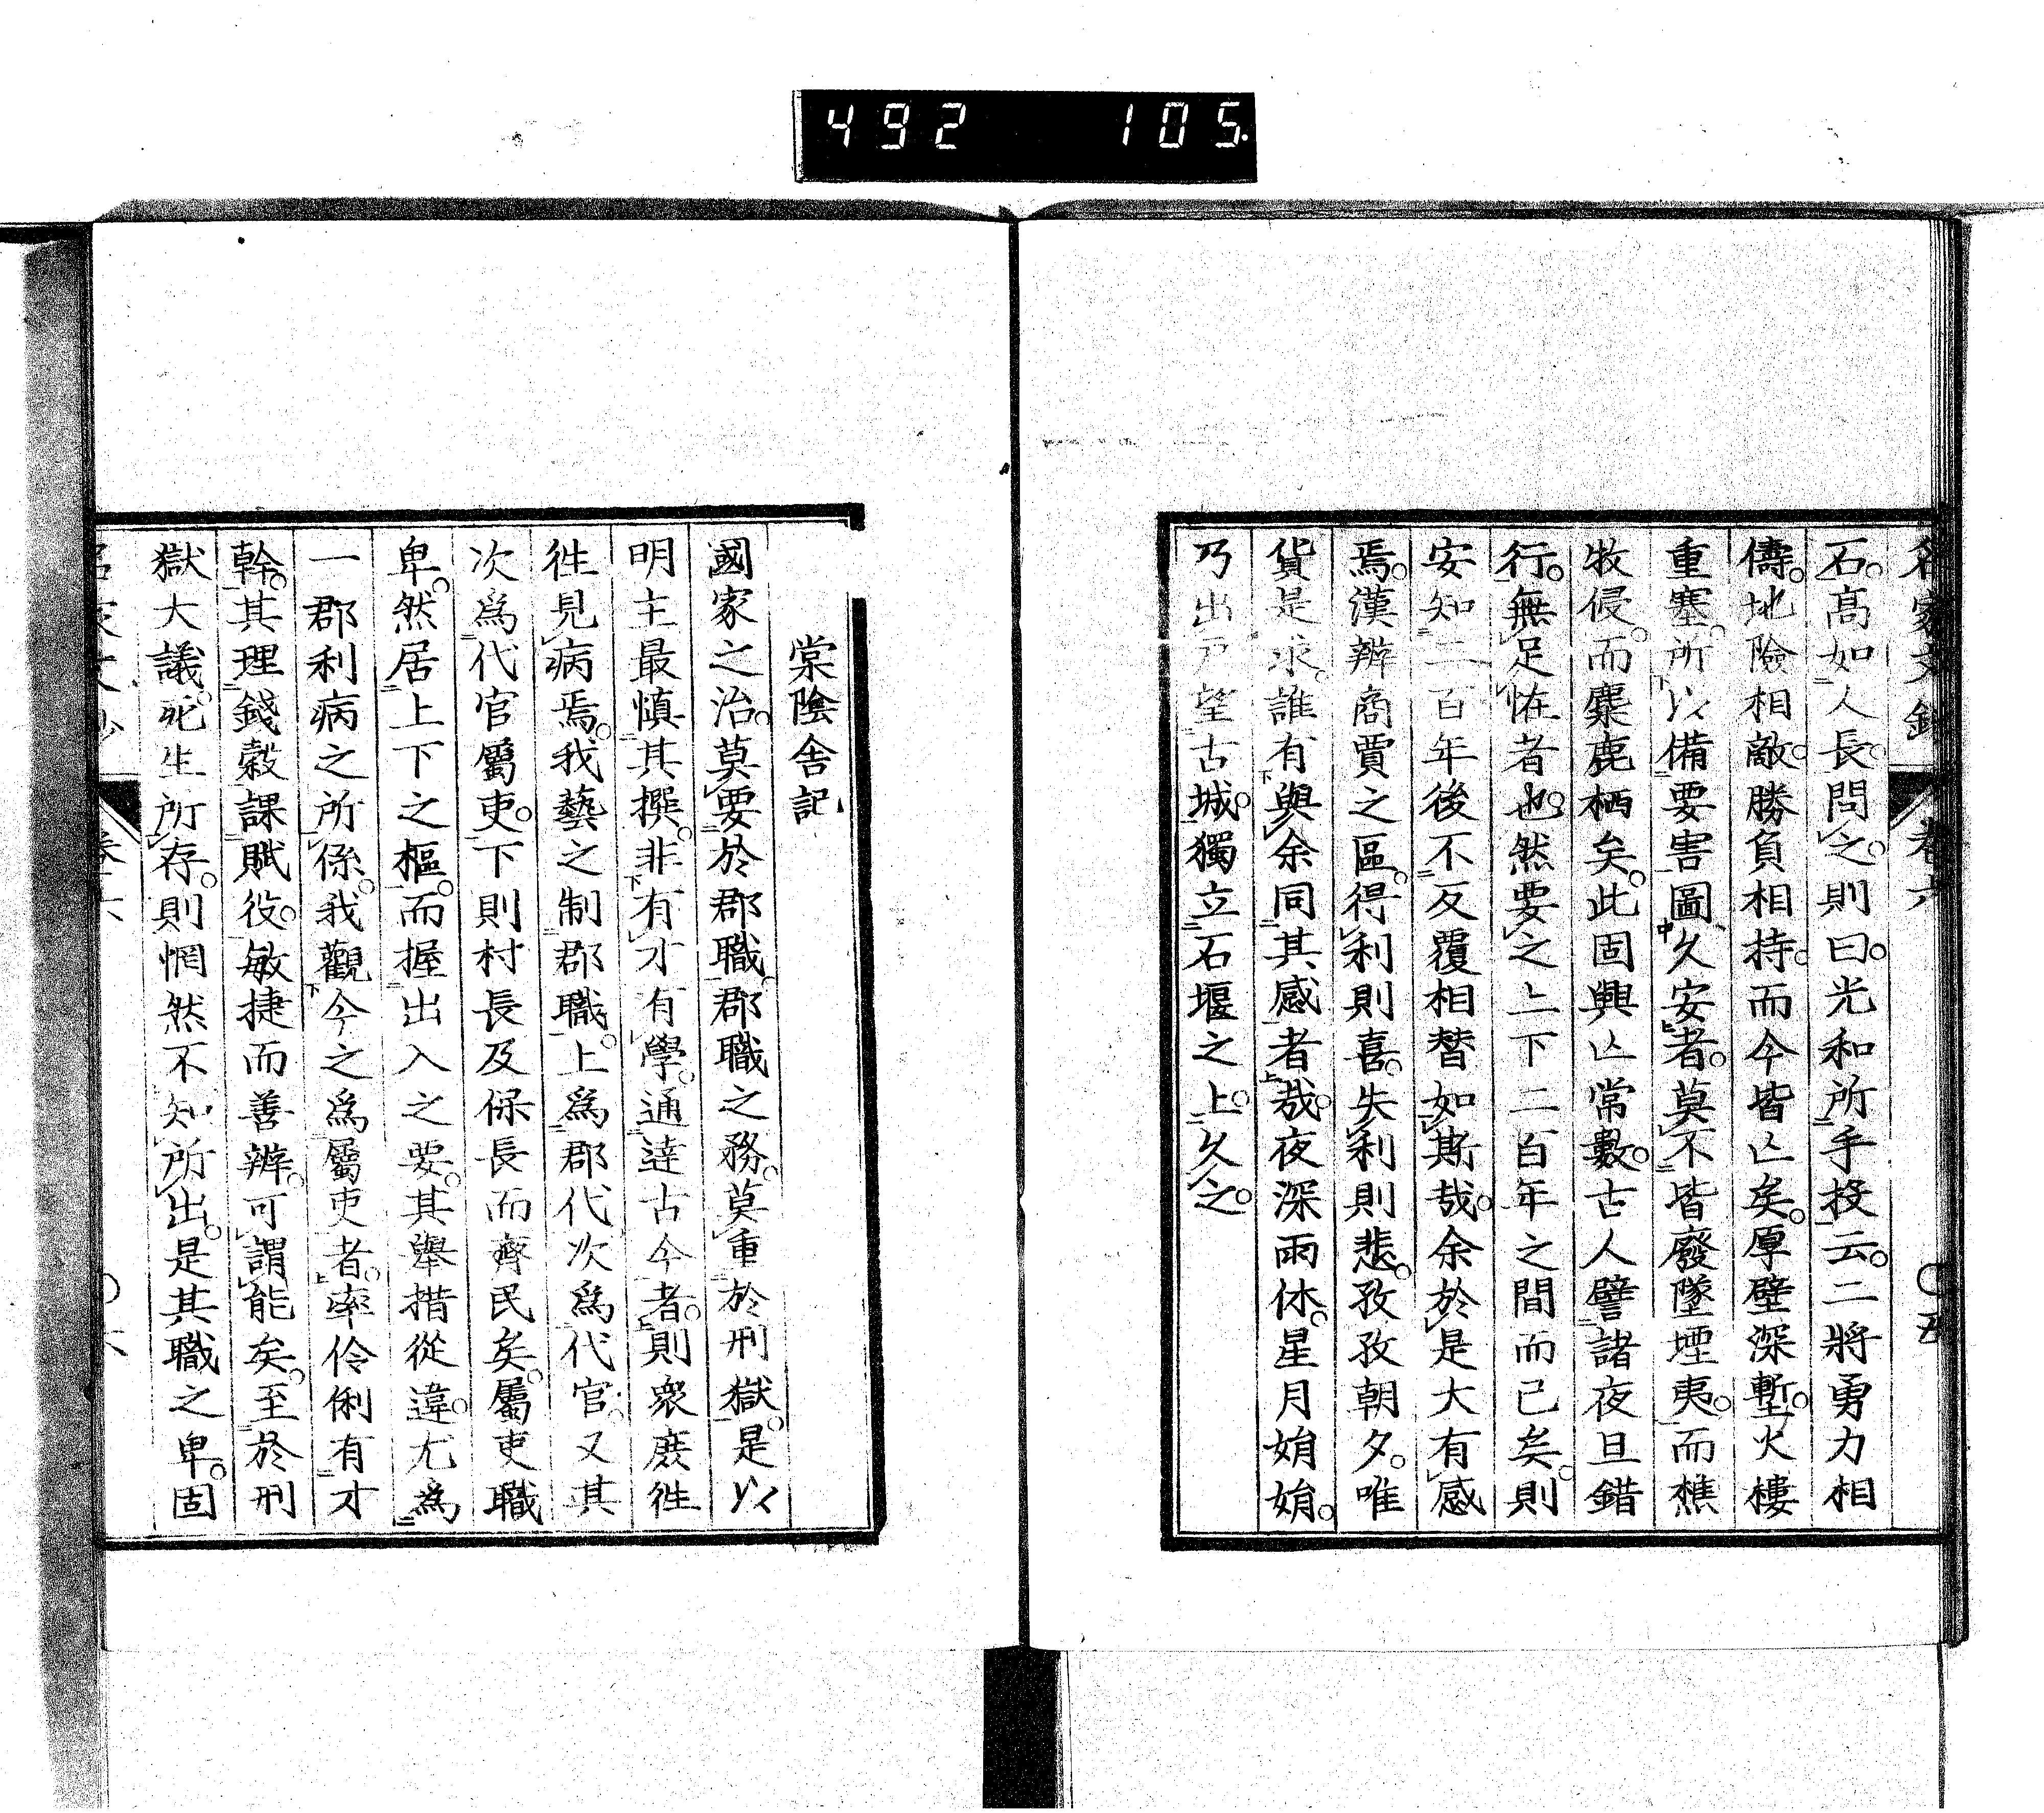 492 105
名家文鈔 卷六 〇五
石。高如人長。問之。則曰。光和所手投云。二將勇力相
儔。地險相敵。勝負相持。而今皆亾矣。厚壁深塹。火樓
重塞。所以備要害圖久安者。莫不皆廢墜堙夷。而樵
牧侵。而麋鹿栖矣。此固興亾常數。古人譬諸夜旦錯
行。無足恠者也。然要之上下二百年之間而已矣。則
安知二百年後不反覆相替如斯哉。余於是大有感
焉。漢辨商賈之區。得利則喜。失利則悲。孜孜朝夕。唯
貨是求。誰有與余同其感者哉。夜深雨休。星月娟娟。
乃出戸望古城。獨立石堰之上。久之。
棠陰舍記
國家之治。莫要於郡職。郡職之務。莫重於刑獄。是以
明主最慎其撰。非有才有學。通達古今者。則衆庶徃
徃見病焉。我藝之制郡職。上爲郡代次爲代官。又其
次爲代官屬吏。下則村長及保長而齊民矣。屬吏職
卑。然居上下之樞。而握出入之要。其舉措從違。尤爲
一郡利病之所係。我觀今之爲屬吏者。率伶俐有才
幹。其理錢穀課賦役。敏捷而善辨。可謂能矣。至於刑
獄大議。死生所存。則惘然不知所出。是其職之卑。固
名家文鈔 卷六 〇六